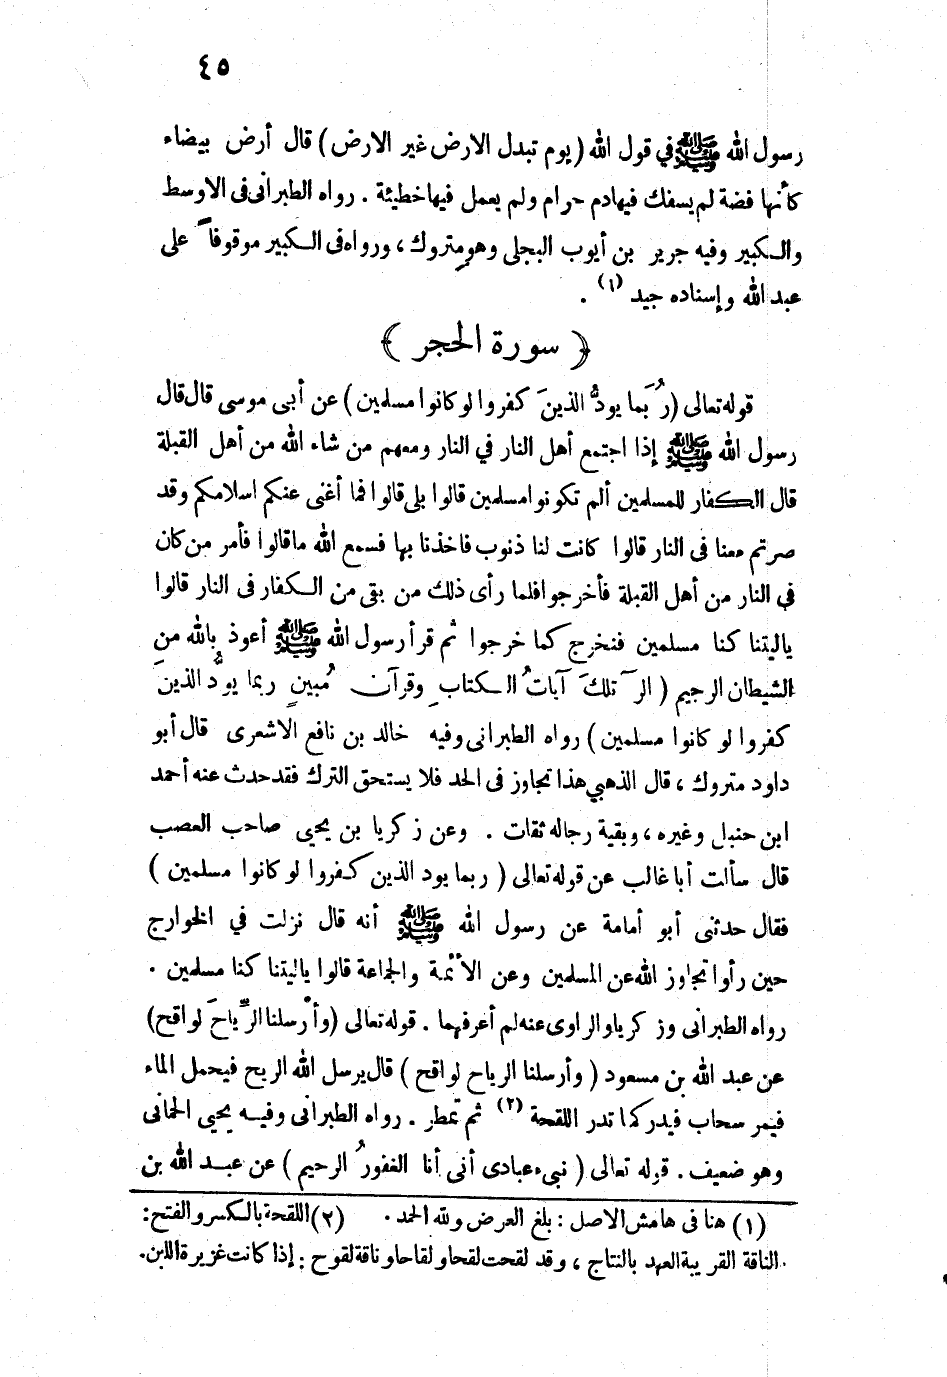 ٤٥
رسول الله ﷺ في قول الله (يوم تبدل الارض غير الارض) قال أرض بيضاء
كأنها فضة لم يسفك فيها دم حرام ولم يعمل فيها خطيئة . رواه الطبرانى فى الاوسط
والكبير وفيه جرير بن أيوب البجلى وهو متروك ، ورواه فى الكبير موقوفاً على
عبد الله وإسناده جيد (١) .
﴿ سورة الحجر ﴾
قوله تعالى (رُبَما يودُّ الذينَ كفروا لو كانوا مسلمين) عن أبى موسى قال قال
رسول الله ﷺ إذا اجتمع أهل النار في النار ومعهم من شاء الله من أهل القبلة
قال الكفار للمسلمين ألم تكونوا مسلمين قالوا بلى قالوا فما أغنى عنكم اسلامكم وقد
صرتم معنا فى النار قالوا كانت لنا ذنوب فاخذنا بها فسمع الله ما قالوا فأمر من كان
في النار من أهل القبلة فأخرجوا فلما رأى ذلك من بقى من الكفار فى النار قالوا
ياليتنا كنا مسلمين فنخرج كما خرجوا ثم قرأ رسول الله ﷺ أعوذ بالله من
الشيطان الرجيم ( الرَ تلكَ آياتُ الكتابِ وقرآنٍ مُبينٍ ربما يودُّ الذينَ
كفروا لو كانوا مسلمين ) رواه الطبرانى وفيه خالد بن نافع الاشعرى قال أبو
داود متروك ، قال الذهبي هذا تجاوز فى الحد فلا يستحق الترك فقد حدث عنه أحمد
ابن حنبل وغيره ، وبقية رجاله ثقات . وعن زكريا بن يحيى صاحب العصب
قال سألت أبا غالب عن قوله تعالى ( ربما يود الذين كفروا لو كانوا مسلمين )
فقال حدثنى أبو أمامة عن رسول الله ﷺ أنه قال نزلت في الخوارج
حين رأوا تجاوز الله عن المسلمين وعن الأئمة والجماعة قالوا ياليتنا كنا مسلمين .
رواه الطبرانى وزكريا والراوى عنه لم أعرفهما . قوله تعالى (وأرْسلنا الرِّياحَ لواقح)
عن عبد الله بن مسعود ( وأرسلنا الرياح لواقح ) قال يرسل الله الريح فيحمل الماء
فيمر سحاب فيدر كما تدر اللقحة (٢) ثم تمطر . رواه الطبرانى وفيه يحيى الحمانى
وهو ضعيف . قوله تعالى ( نبىء عبادى أنى أنا الغفورُ الرحيم ) عن عبد الله بن
(١) هنا فى هامش الاصل : بلغ العرض ولله الحمد . (٢) اللقحة بالكسر والفتح :
الناقة القريبة العهد بالنتاج ، وقد لقحت لقحا ولقاحا وناقة لقوح : إذا كانت غزيرة اللبن .